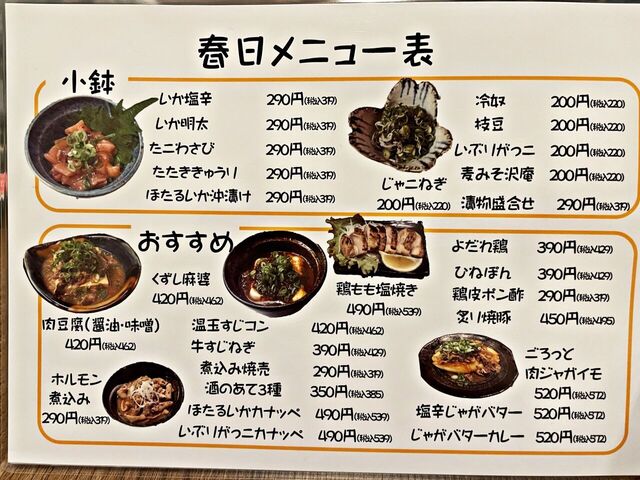 春日メニュー表
小鉢
いか塩辛 290円(税込319)
いか明太 290円(税込319)
たこわさび 290円(税込319)
たたききゅうり 290円(税込319)
ほたるいか沖漬け 290円(税込319)
じゃこねぎ
200円(税込220)
冷奴 200円(税込220)
枝豆 200円(税込220)
いぶりがっこ 200円(税込220)
麦みそ沢庵 200円(税込220)
漬物盛合せ 290円(税込319)
おすすめ
くずし麻婆
420円(税込462)
肉豆腐(醤油・味噌)
420円(税込462)
ホルモン
煮込み
290円(税込319)
鶏もも塩焼き
490円(税込539)
温玉すじコン 420円(税込462)
牛すじねぎ 390円(税込429)
煮込み焼売 290円(税込319)
酒のあて3種 350円(税込385)
ほたるいかカナッペ 490円(税込539)
いぶりがっこカナッペ 490円(税込539)
よだわ鶏 390円(税込429)
ひねぽん 390円(税込429)
鶏皮ポン酢 290円(税込319)
炙り焼豚 450円(税込495)
ごろっと
肉ジャガイモ
520円(税込572)
塩辛じゃがバター 520円(税込572)
じゃがバターカレー 520円(税込572)